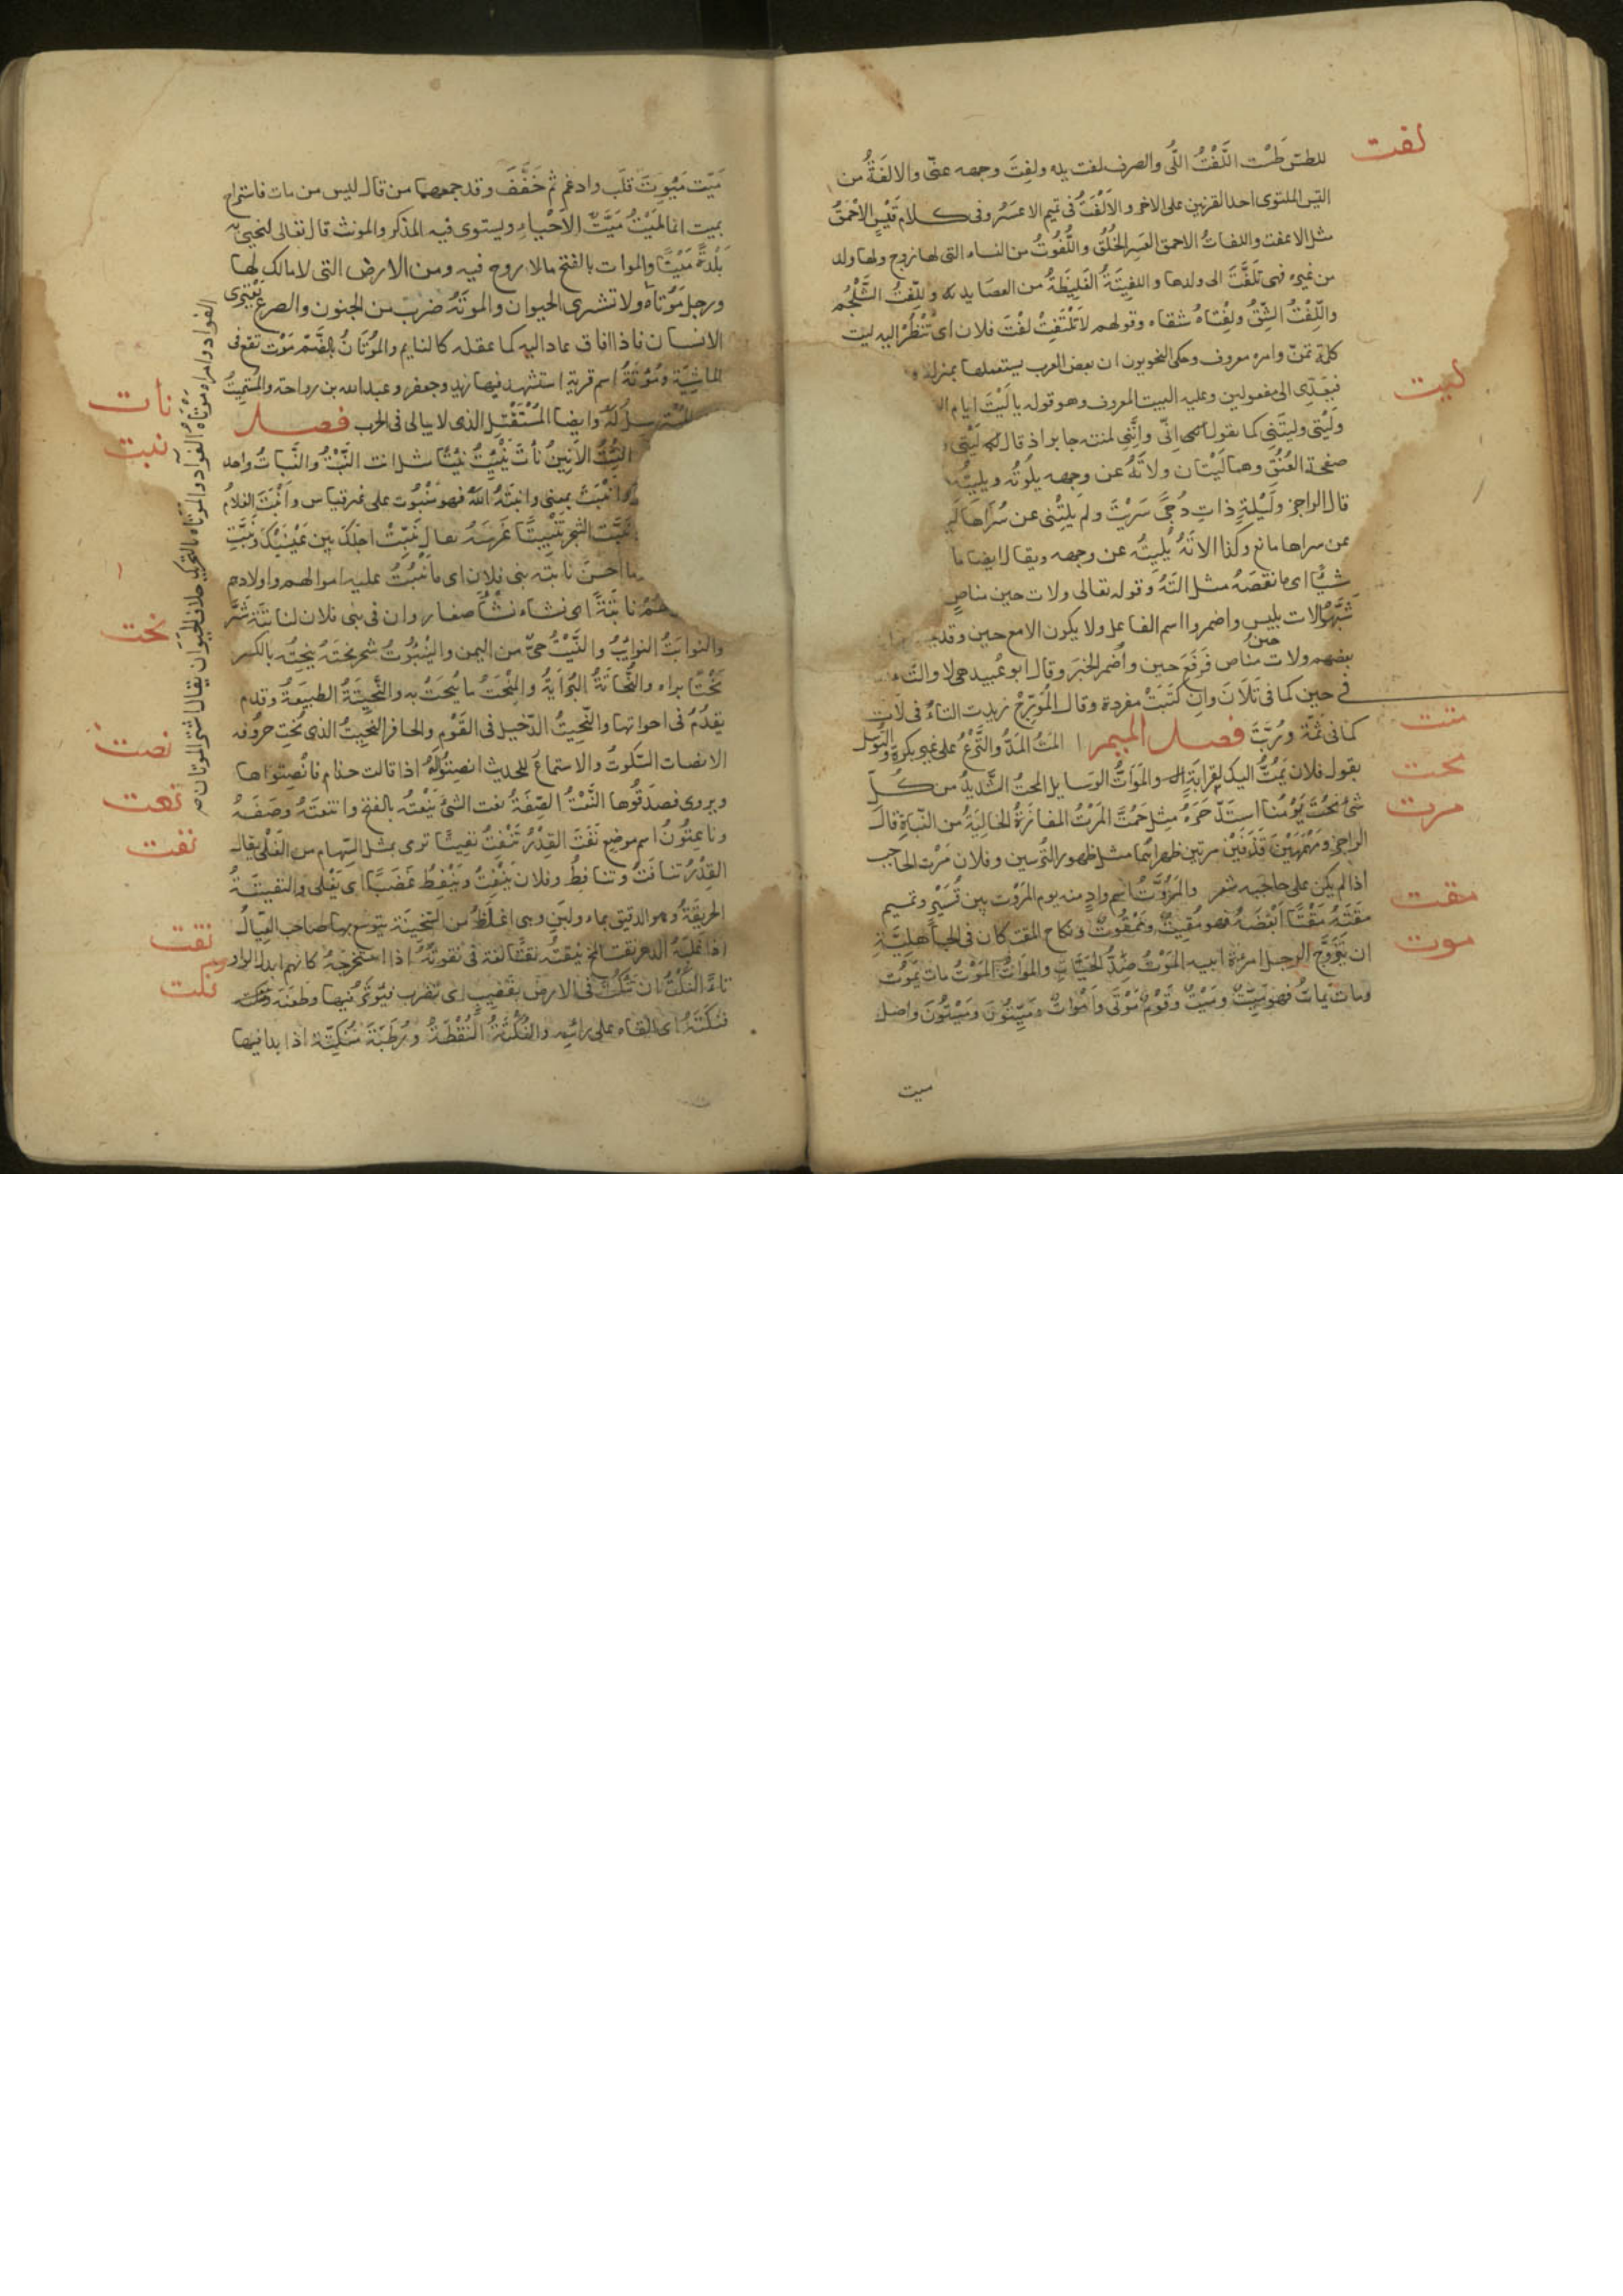 لفت
للطس طست اللَّفْتُ اللَّى والصرف لفت يده ولفِتَ وجهه عنّى والالفَةُ من
التيس الملتوى احد القرنين على الاخر والاَلْفَتُ فى تميم الاعسَرُ وفى كلام قَيْسٍ الاحْمَقُ
مثل الاعفت واللفاتُ الاحمق العَسِر الخُلُق واللَّفُوتُ من النساء التى لها زوج ولها ولد
من غيره فهى تَلَفَّتُ الى ولدها واللفِيتَةُ الغَلِيظَةُ من العصَايد واللِّفتُ الشَّلْجُم
واللِّفْتُ الشِّقُّ ولِفْتَاهُ شقاه وقولهم لاَ تَلْتَفِتْ لِفْتَ فلان اى تَنْظُرْ اليه ليت
ليت
كلمة تمنّ وامره معروف وحكى النحويون ان بعض العرب يستعملها بمنزلة
فيعَدّى الى مفعولين وعليه البيت المعروف وهو قوله يا لَيْتَ ايام ال
ولَيْتى وليتَنى كما يقول اِنّى واِنَّنِى لمنته جابر اذ قال ليْتى
صفحة العُنُقِ وهما لَيْتَان ولاَتَهُ عن وجهه يلُوتُه ويليتُه
قال الراجز ولَيْلَةٍ ذاتِ دُجًى سَرَيْتُ ولم يَلِتْنى عن سُرَاهَا لَيـ
عن سراها مانع وكذا الاتَهُ يُلِيتُه عن وجهه ويقال ايضا ما
شيًا اى ما نقصَهُ مثل التَهُ وقوله تعالى ولات حين مناصٍ
شَبَّهُوا لات بليس واضمروا اسم الفاعل ولا يكون الا مع حين وقد
بعضهم ولات حينُ مناص فرَفَعَ حين واُضمر الخبر وقال ابو عُبيد هى لا والتاء
فى حين كما فى تَلَانَ وان كتَبَتْ مفردة وقال المُورّجْ زيدت التاءُ فى لاَت
متت
كما فى ثمّة ورُبَّتَ فصل الميم المتُّ المدُّ والنَّزْعُ على غير بكرة والتوسّل
محت
يقول فلان يَمُتُّ اليك بقرابةٍ والموَاتُّ الوسايل المحتُ الشَّديدُ من كُلّ
مرت
شئٍ محُتَ يَوْمُنَا اشتَدَّ حَرّه مِثل حَمُتَ المَرْتُ المفازَةُ الخاليَةُ من النّبَاتِ قال
الراجز ومَهْمَهَيْن قَذَفَيْن مرتين ظهراهُما مثل ظهور التُّرسين وفلان مَرْت الحاجب
اذا لم يكن على حاجبيه شعر والمَرُّوتُ اسم وادٍ منه يوم المَرُّوت بين قُشَيْرٍ وتميم
مقت
مقَتَهُ مَقْتًا اَبْغَضَهُ فهو مَقِيتٌ ومَمْقُوتٌ ونكاح المقت كان فى الجاهليَّةِ
موت
ان يَتزَوَّج الرجل امرءة ابيه الموْتُ ضِدُّ الحَيَاةِ والمُواتُ الموْتُ مات يَمُوت
ومات يَماتُ فهو مَيّتٌ ومَيْتٌ وقَوْمٌ مَوْتَى واَمْوَاتٌ ومَيِّتُونَ ومَيْتُونَ واصل
ميت
مَيّت مَيْوِتٌ قلب وادغم ثم خَفَّفَ وقد جمعهما من قال ليس من مات فاستراح
بميت انما المَيْتُ مَيِّتُ الاَحْيَاءِ ويستوى فيه المذكر والمونث قال تعالى لنحيى به
بَلْدةً مَيْتًا والموات بالفتح مالا روح فيه ومن الارض التى لا مالك لها
ورجل مَوْتَاهُ ولا تشترى الحيوان والموتَهُ ضرب من الجنون والصرع يَعْتَرى
الانسان فاذا افاق عاد اليه كما عقله كالنايم والمُوْتَانُ بالضّمّ مَوْت تقع فى
الماشِيَة ومُوتَةُ اسم قرية استشهد فيها زيد وجعفر وعبد الله بن رواحة والمُسْتَمِيتُ
المسترسِلُ وايضا المُسْتَقْتِل الذى لا يبالى فى الحرب فصل
نأت
نبت
الاَنِينُ نأتَ يَنْئِتُ نَئِيتًا مثل انت النَّبْتُ والنَّبَاتُ واحد
وانْبَتَ بمعنى وانبَتَهُ اللهُ فهو مَنْبُوت على غير قياس وانْبَتَ الغلامُ
نَبَّتَ الشجر تَنْبِيتًا غَرَسَهُ يقال نَبِّتْ اجلَكَ بين عَيْنَيْكَ ونبَّتِ
ما احْسَنَ نابتَه بنى فلان اى ما نبُتُ عليه اموالهم واولادهم
لهُمْ نابتَةٌ اى نشاء نشأً صغار وان فى بنى فلان لنابتَة شَرٍّ
نحت
والنوابتُ النوايبُ والنَّبِيتُ حىّ من اليمن والينْبُوتُ شجر نحَتَهُ ينحِتُه بالكسر
نَحْتًا براه والنُّحَاتَةُ البُرَايَةُ والمِنْحَتُ ما يُنحَتُ به والنَّحِيتَةُ الطبيعَةُ وقدم
يقدُمُ فى اخواتها والنَّحِيتُ الدّخيل فى القَوْمِ والحافر النحيتُ الذى نُحِتِ حروفه
نصت
الانصات السّكوتُ والاستماعُ للحديث انصِتُوا له اذا قالت حذام فانْصِتُواها
نعت
ويروى فصدّقُوها النَّعْتُ الصِّفَةُ نعت الشئَ يَنعْتُه بالفتح وانتعتَهُ وصَفَهُ
نفت
وناعتُونُ اسم موضع نَفَتَ القِدْرُ تَنْفِتُ نفِيتًا ترى بمثل السِّهام من الغَلْى يقال
القِدْرُ تنافَتُ وتنافِطُ وفلان ينْفِتُ ويَنْفِطُ غَضَبًا اى يَغْلى والنفيتَةُ
الحريقَةُ وهو الدقيق بماء ولبنٍ وهى اغلظُ من السّخِينَة يتوسع بها صاحب العيال
نقت
اذا غلبَهُ الدهر نقت المخ ينقتُه نقتًا لغة فى نقوتُهُ اذا استخرجهُ كانهم ابدلوا الواو
نكت
تاءً النَّكْتُ ان تنكُتَ فى الارض بقضيبٍ اى تضرب فيوثّر فيها وطعَنَهُ فنكتَه
فنكتَهُ اى القاه على رأسِه والنُّكْتَةُ النُّقْطَةُ ورُطَبَةٌ مُنَكِّتةٌ اذا بدا فيها